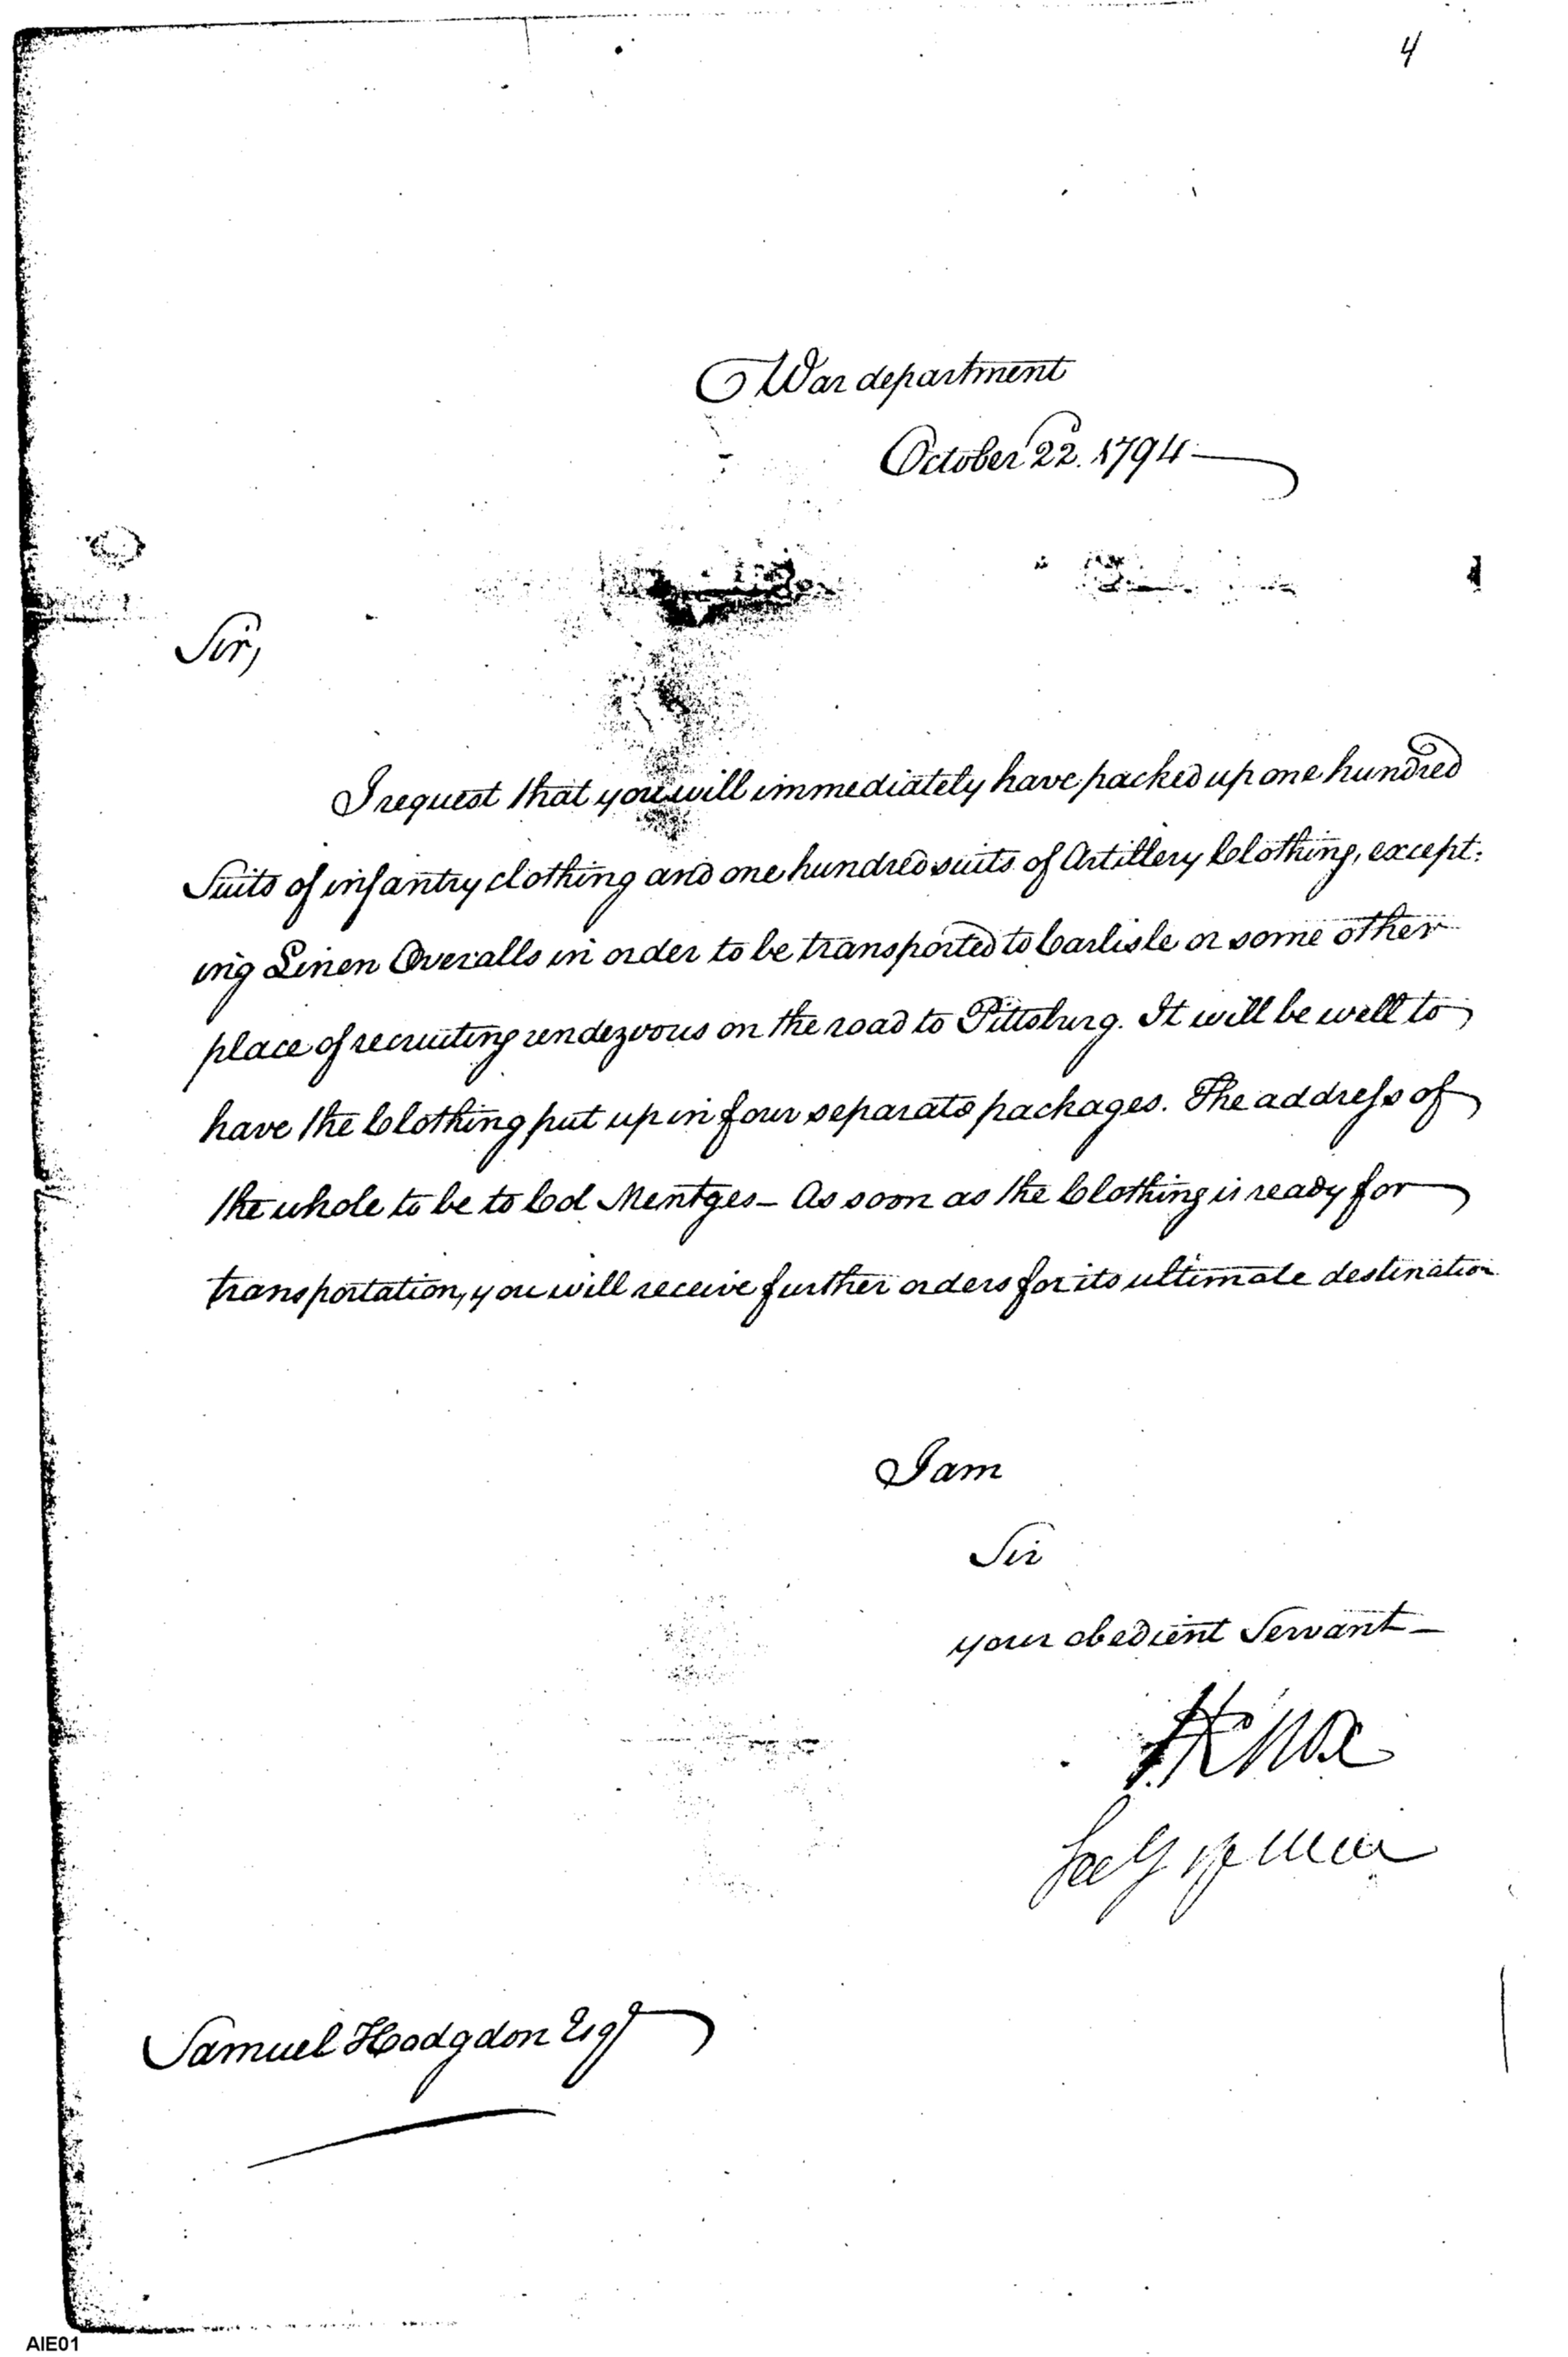 4
War department
October 22. 1794
Sir,
I request that you will immediately have packed up one hundred
Suits of infantry clothing and one hundred suits of Artillery Clothing, except:
ing Linen Overalls in order to be transported to Carlisle or some other
place of recruiting rendezvous on the road to Pittsburg. It will be well to
have the Clothing put up in four separate packages. The address of
the whole to be to Col Mentges - As soon as the Clothing is ready for
transportation, you will receive further orders for its ultimate destination
I am
Sir
your obedient Servant -
HKnox
Secy of War
Samuel Hodgdon Esqr
AIE01